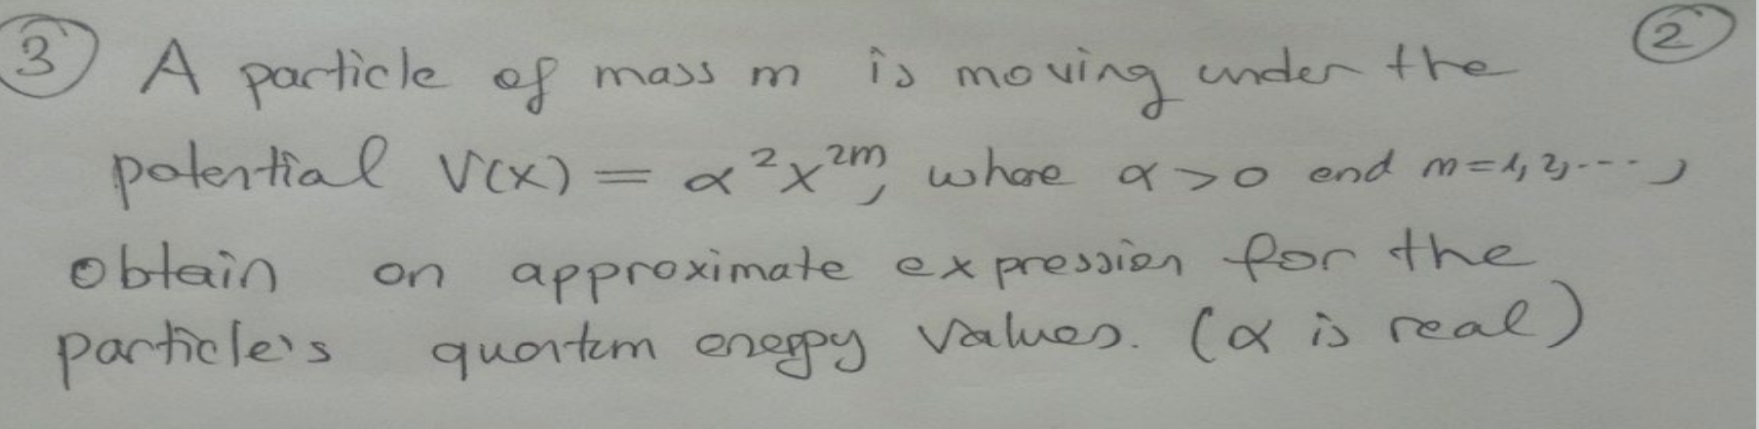 ③ A particle of mass m is moving under the ②
potential V(x) = α²x²ᵐ, where α>0 and m=1,2,...,
obtain an approximate expression for the
particle's quantum energy values. (α is real)